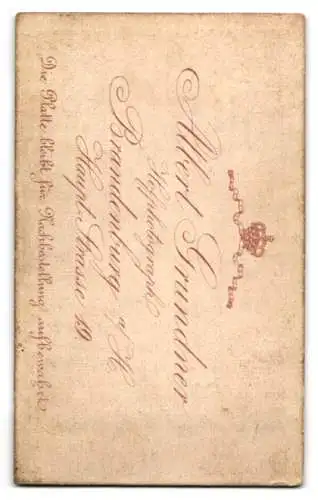 Albert Grundner
Hofphotograph
Brandenburg a/H.
Haupt-Strasse 19
Die Platte bleibt für Nachbestellung aufbewahrt.